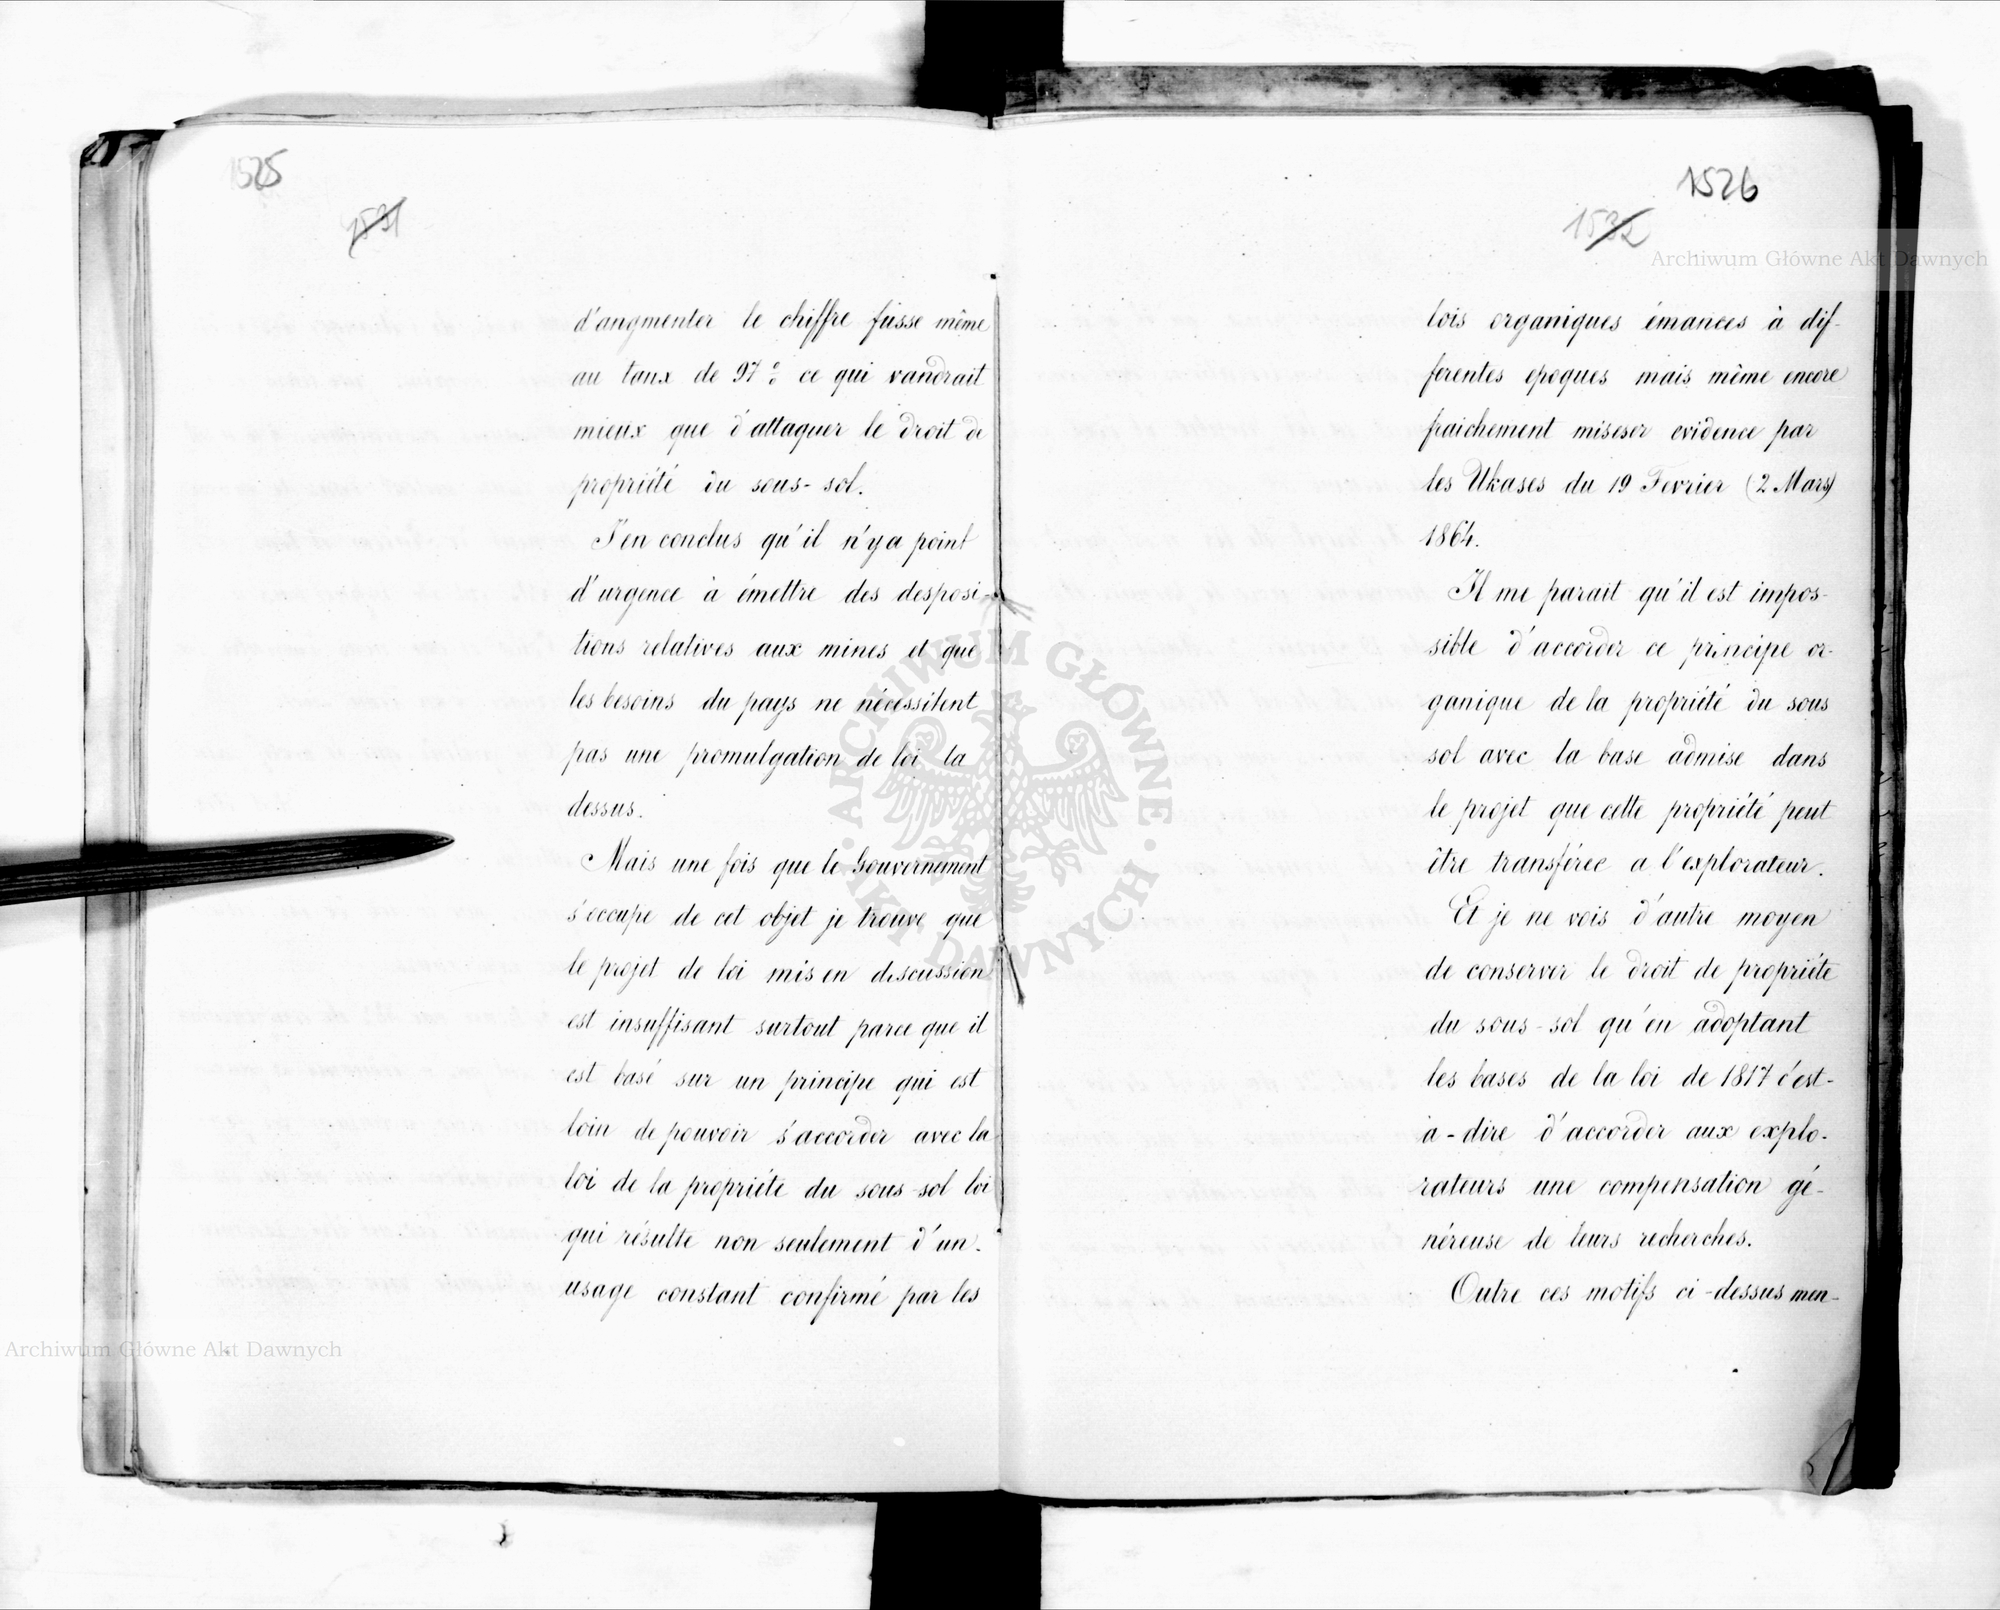 1525
1531
d'angmenter le chiffre fusse même
au taux de 97% ce qui vandrait
mieux que d'attaquer le droit de
propriété du sous-sol.
J'en conclus qu'il n'y a point
d'urgence à émettre des desposi-
tions relatives aux mines et que
les besoins du pays ne nécessitent
pas une promulgation de loi la
dessus.
Mais une fois que le Gouvernement
s'occupe de cet objet je trouve que
le projet de loi mis en discussion
est insuffisant surtout parce que il
est basé sur un principe qui est
loin de pouvoir s'accorder avec la
loi de la propriéte du sous-sol loi
qui résulte non seulement d'un.
usage constant confirmé par les
1526
1532
lois organiques émanées à dif-
ferentes epoques mais même encore
fraichement miseser evidence par
les Ukases du 19 Fevrier (2 Mars)
1864.
Il me parait qu'il est impos-
sible d'accorder ce principe or-
ganique de la propriété du sous
sol avec la base admise dans
le projet que cette propriété peut
être transférée a l'explorateur.
Et je ne vois d'autre moyen
de conserver le droit de propriéte
du sous-sol qu'en adoptant
les bases de la loi de 1817 c'est-
a-dire d'accorder aux explo-
rateurs une compensation gé-
néreuse de leurs recherches.
Outre ces motifs ci-dessus men-
Archiwum Główne Akt Dawnych
ARCHIWUM GŁÓWNE AKT DAWNYCH
Archiwum Główne Akt Dawnych